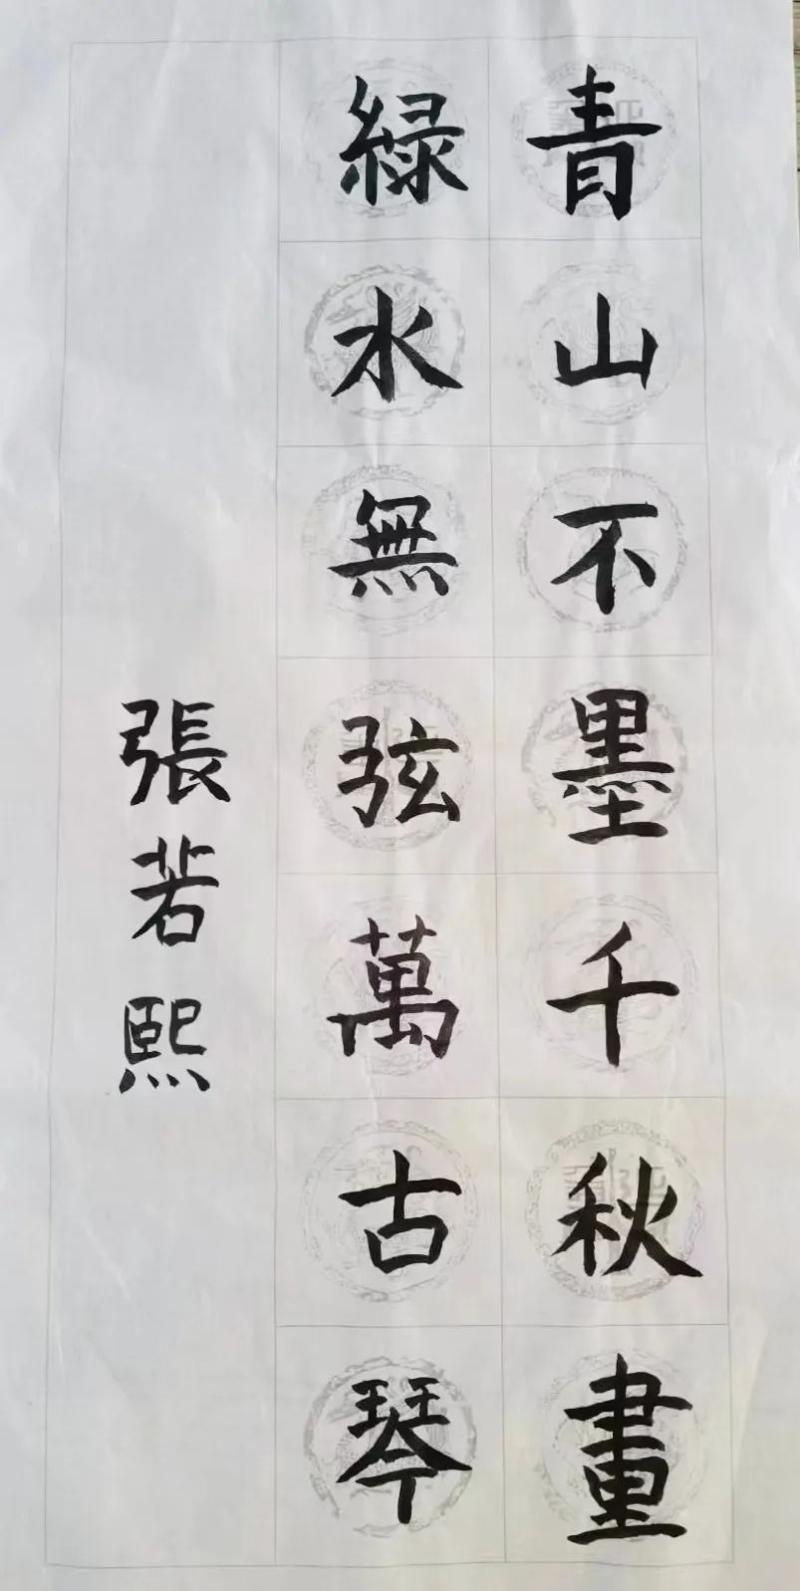 青山不墨千秋畫
綠水無弦萬古琴
張若熙